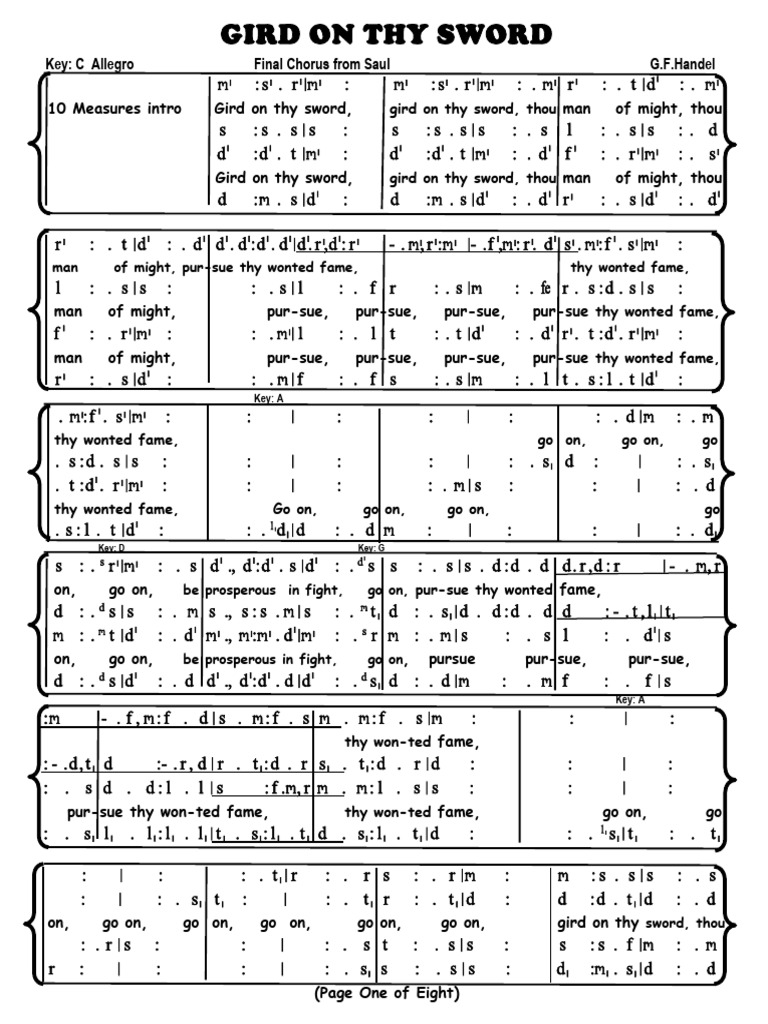 GIRD ON THY SWORD
Key: C Allegro Final Chorus from Saul G.F.Handel
m' :s' . r'|m' : m' :s' . r'|m' : . m' r' : . t |d' : . m'
10 Measures intro Gird on thy sword, gird on thy sword, thou man of might, thou
s :s . s|s : s :s . s|s : . s l : . s|s : . d
d' :d' . t |m' : d' :d' . t |m' : . d' f' : . r'|m' : . s'
Gird on thy sword, gird on thy sword, thou man of might, thou
d :m . s|d' : d :m . s|d' : . d' r' : . s|d' : . d'
r' : . t |d' : . d' d'. d':d'. d'|d'.r',d':r' - .m',r':m' |- .f',m':r'. d' s'. m':f'. s'|m' :
man of might, pur-sue thy wonted fame, thy wonted fame,
l : . s|s : : . s|l : . f r : . s|m : . fe r . s:d . s|s :
man of might, pur-sue, pur-sue, pur-sue, pur-sue thy wonted fame,
f' : . r'|m' : : . m'|l : . l t : . t|d' : . d' r'. t:d'. r'|m' :
man of might, pur-sue, pur-sue, pur-sue, pur-sue thy wonted fame,
r' : . s|d' : : . m|f : . f s : . s|m : . l t . s:l . t|d' :
Key: A
. m':f'. s'|m' : : | : : | : : . d|m : . m
thy wonted fame, go on, go on, go
. s:d . s|s : : | : : | : . s₁ d : | : . s₁
. t:d'. r'|m' : : | : : . m|s : : | : . d
thy wonted fame, Go on, go on, go on, go
. s:l . t|d' : : . ˡ'd₁|d : . d m : | : : | : . d₁
Key: D Key: G
s : . ˢr'|m' : . s d' ., d':d'. s|d' : . ᵈ's s : . s|s . d:d . d d.r,d:r |- . m,r
on, go on, be prosperous in fight, go on, pur-sue thy wonted fame,
d : . ᵈs|s : . m s ., s:s . m|s : . ᵐt₁ d : . s₁|d . d:d . d d :- .t₁,l₁|t₁
m : . ᵐt|d' : . d' m'., m':m'. d'|m' : . ˢr m : . m|s : . s l : . d'|s
on, go on, be prosperous in fight, go on, pursue pur-sue, pur-sue,
d : . ᵈs|d' : . d d'., d':d'. d|d' : . ᵈs₁ d : . d|m : . m f : . f|s
Key: A
:m |- . f,m:f . d|s . m:f . s m . m:f . s|m : : | :
thy won-ted fame,
:- .d,t₁ d :- .r,d|r . t₁:d . r s₁ . t₁:d . r|d : : | :
: . s d . d:l . l|s :f.m,r m . m:l . s|s : : | :
pur-sue thy won-ted fame, thy won-ted fame, go on, go
: . s₁ l₁ . l₁:l₁ . l₁|t₁ . s₁:l₁ . t₁ d . s₁:l₁ . t₁|d : : . ˡ's₁|t₁ : . t₁
: | : : . t₁|r : . r s : . r|m : m :s . s|s : . s
: | : . s₁ t₁ : | : . t₁ r : . t₁|d : d :d . t₁|d : . d
on, go on, go on, go on, go on, go on, gird on thy sword, thou
: . r|s : : | : . s t : . s|s : s :s . f|m : . m
r : | : : | : . s₁ s : . s|s : d₁ :m₁ . s₁|d : . d
(Page One of Eight)